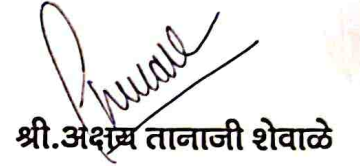 श्री.अक्षय तानाजी शेवाळे